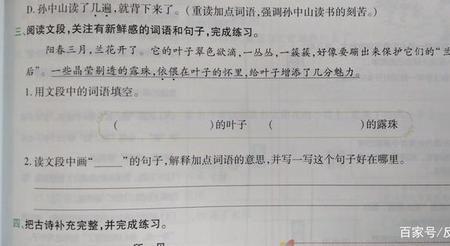 D. 孙中山读了几遍,就背下来了。(重读加点词语,强调孙中山读书的刻苦。)
三、阅读文段,关注有新鲜感的词语和句子,完成练习。
阳春三月,兰花开了。它的叶子翠色欲滴,一丛丛,一蔟蔟,好像要蹦出来保护它们的“兰
后”。一些晶莹剔透的露珠,依偎在叶子的怀里,给叶子增添了几分魅力。
1. 用文段中的词语填空。
( )的叶子 ( )的露珠
2. 读文段中画“____”的句子,解释加点词语的意思,并写一写这个句子好在哪里。
四、把古诗补充完整,并完成练习。
百家号/反